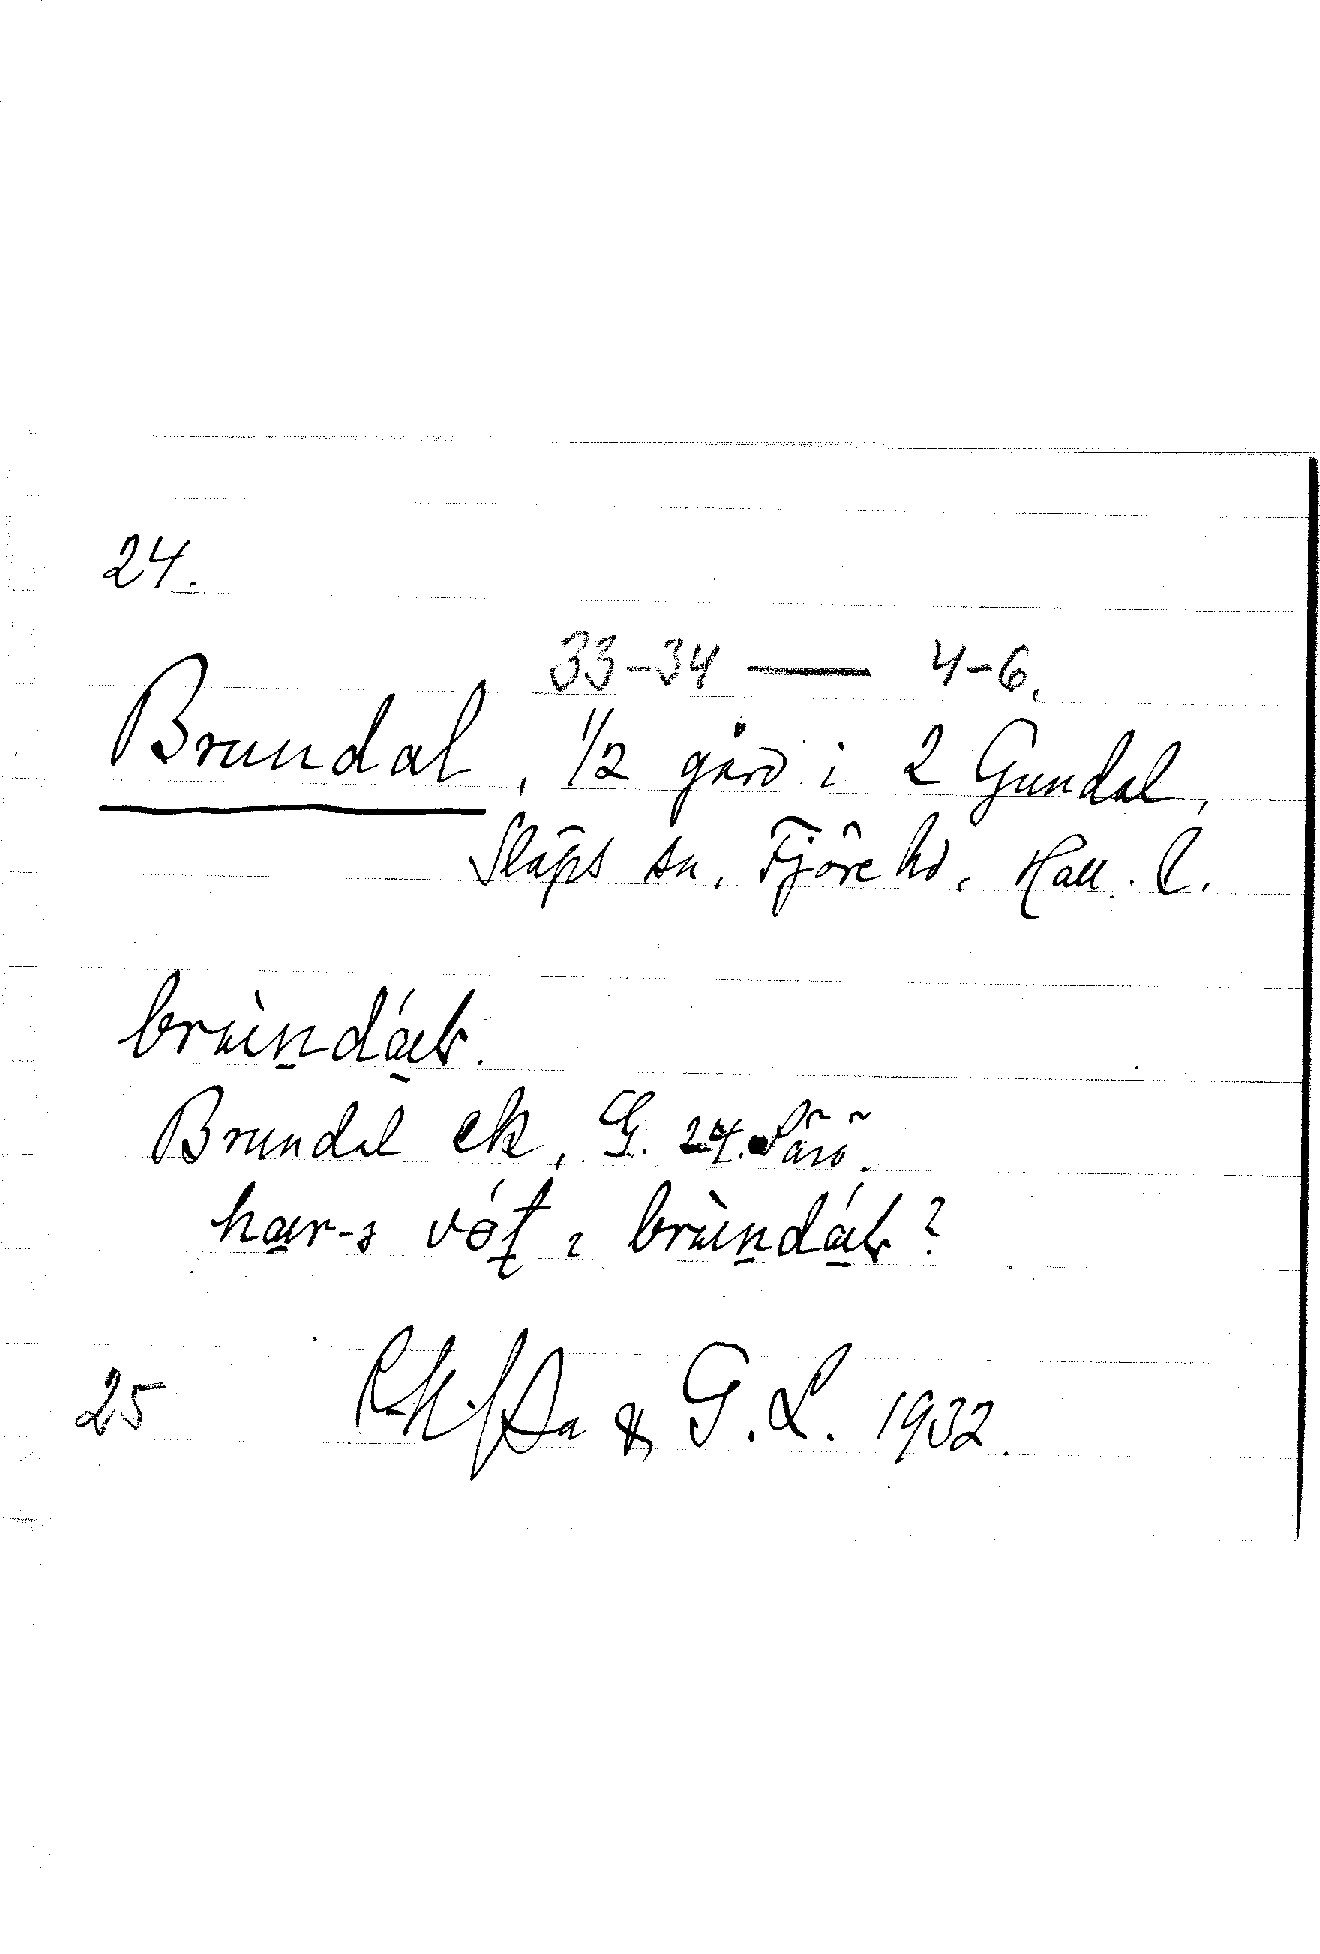 24.
33-34 — 4-6.
Brundal, 1/2 gård i 2 Gundal,
Släps sn, Fjäre hd, Hall. l.
brùndáɫ.
Brundal ek, G. 24. Särö.
har-s vót ı brùndáɫ?
25 & G. L. 1932.